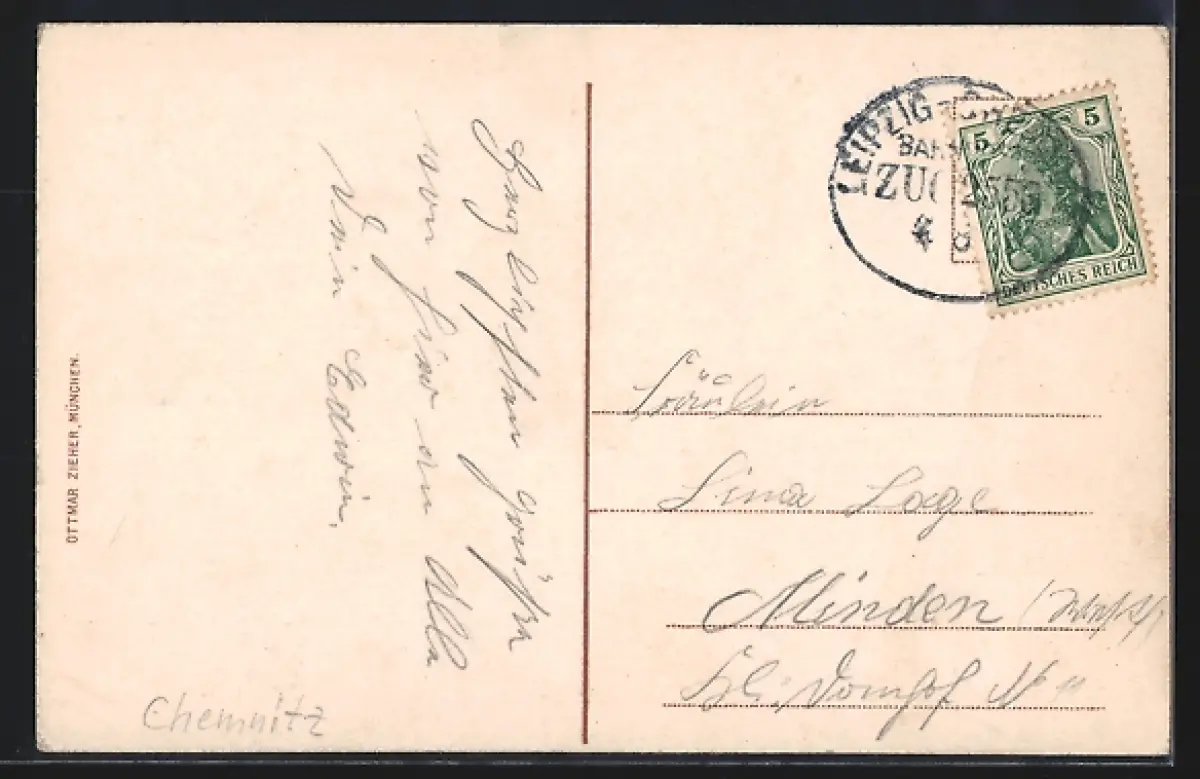 Herzlichsten Grüße
von hier an Alle
Dein Edwin.
Chemnitz
OTTMAR ZIEHER, MÜNCHEN.
LEIPZIG
ZUG
5 5
DEUTSCHES REICH
Fräulein
Lina Lage
Minden
Kl. Domhof № 11